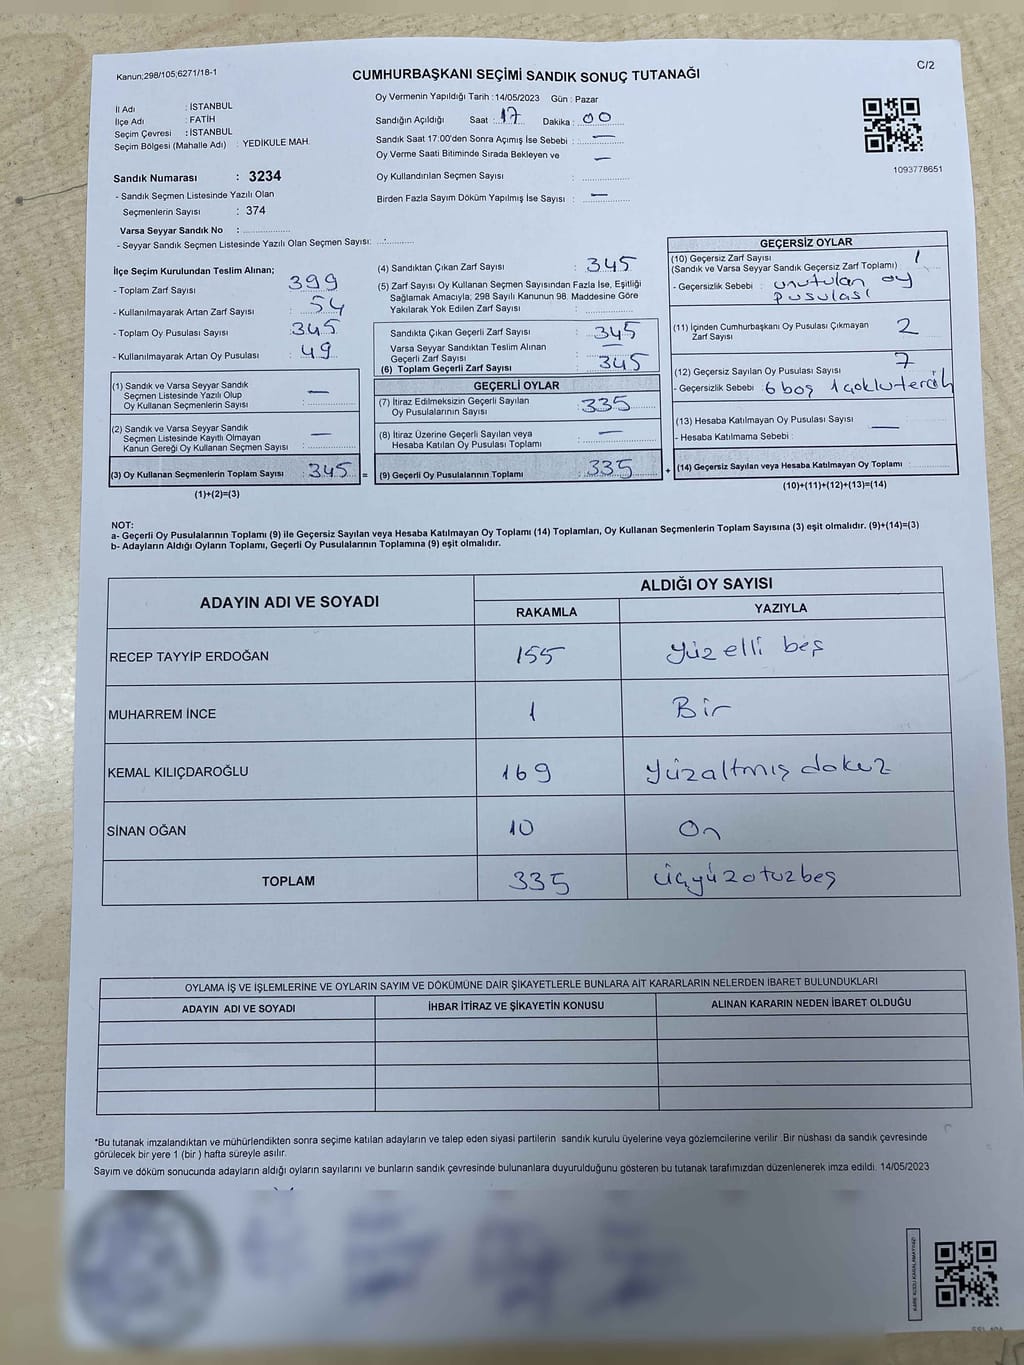 Kanun;298/105;6271/18-1
CUMHURBAŞKANI SEÇİMİ SANDIK SONUÇ TUTANAĞI
C/2
İl Adı : İSTANBUL
İlçe Adı : FATİH
Seçim Çevresi : İSTANBUL
Seçim Bölgesi (Mahalle Adı) : YEDİKULE MAH.
Sandık Numarası : 3234
- Sandık Seçmen Listesinde Yazılı Olan
Seçmenlerin Sayısı : 374
Varsa Seyyar Sandık No :
- Seyyar Sandık Seçmen Listesinde Yazılı Olan Seçmen Sayısı:
Oy Vermenin Yapıldığı Tarih : 14/05/2023 Gün : Pazar
Sandığın Açıldığı Saat : 17 Dakika : 00
Sandık Saat 17:00'den Sonra Açımış İse Sebebi : —
Oy Verme Saati Bitiminde Sırada Bekleyen ve —
Oy Kullandırılan Seçmen Sayısı :
Birden Fazla Sayım Döküm Yapılmış İse Sayısı : —
1093778651
İlçe Seçim Kurulundan Teslim Alınan;
- Toplam Zarf Sayısı : 399
- Kullanılmayarak Artan Zarf Sayısı : 54
- Toplam Oy Pusulası Sayısı : 345
- Kullanılmayarak Artan Oy Pusulası : 49
(1) Sandık ve Varsa Seyyar Sandık
Seçmen Listesinde Yazılı Olup —
Oy Kullanan Seçmenlerin Sayısı :
(2) Sandık ve Varsa Seyyar Sandık
Seçmen Listesinde Kayıtlı Olmayan —
Kanun Gereği Oy Kullanan Seçmen Sayısı :
(3) Oy Kullanan Seçmenlerin Toplam Sayısı : 345 =
(1)+(2)=(3)
(4) Sandıktan Çıkan Zarf Sayısı : 345
(5) Zarf Sayısı Oy Kullanan Seçmen Sayısından Fazla İse, Eşitliği
Sağlamak Amacıyla; 298 Sayılı Kanunun 98. Maddesine Göre
Yakılarak Yok Edilen Zarf Sayısı :
Sandıkta Çıkan Geçerli Zarf Sayısı : 345
Varsa Seyyar Sandıktan Teslim Alınan —
Geçerli Zarf Sayısı :
(6) Toplam Geçerli Zarf Sayısı : 345
GEÇERLİ OYLAR
(7) İtiraz Edilmeksizin Geçerli Sayılan
Oy Pusulalarının Sayısı : 335
(8) İtiraz Üzerine Geçerli Sayılan veya —
Hesaba Katılan Oy Pusulası Toplamı :
(9) Geçerli Oy Pusulalarının Toplamı : 335 +
GEÇERSİZ OYLAR
(10) Geçersiz Zarf Sayısı 1
(Sandık ve Varsa Seyyar Sandık Geçersiz Zarf Toplamı) :
- Geçersizlik Sebebi : unutulan oy
pusulası
(11) İçinden Cumhurbaşkanı Oy Pusulası Çıkmayan 2
Zarf Sayısı
(12) Geçersiz Sayılan Oy Pusulası Sayısı : 7
- Geçersizlik Sebebi : 6 boş 1 çoklu tercih
(13) Hesaba Katılmayan Oy Pusulası Sayısı —
- Hesaba Katılmama Sebebi :
(14) Geçersiz Sayılan veya Hesaba Katılmayan Oy Toplamı :
(10)+(11)+(12)+(13)=(14)
NOT:
a- Geçerli Oy Pusulalarının Toplamı (9) ile Geçersiz Sayılan veya Hesaba Katılmayan Oy Toplamı (14) Toplamları, Oy Kullanan Seçmenlerin Toplam Sayısına (3) eşit olmalıdır. (9)+(14)=(3)
b- Adayların Aldığı Oyların Toplamı, Geçerli Oy Pusulalarının Toplamına (9) eşit olmalıdır.
ADAYIN ADI VE SOYADI
ALDIĞI OY SAYISI
RAKAMLA YAZIYLA
RECEP TAYYİP ERDOĞAN 155 yüz elli beş
MUHARREM İNCE 1 Bir
KEMAL KILIÇDAROĞLU 169 yüzaltmış dokuz
SİNAN OĞAN 10 On
TOPLAM 335 üçyüzotuzbeş
OYLAMA İŞ VE İŞLEMLERİNE VE OYLARIN SAYIM VE DÖKÜMÜNE DAİR ŞİKAYETLERLE BUNLARA AİT KARARLARIN NELERDEN İBARET BULUNDUKLARI
ADAYIN ADI VE SOYADI İHBAR İTİRAZ VE ŞİKAYETİN KONUSU ALINAN KARARIN NEDEN İBARET OLDUĞU
*Bu tutanak imzalandıktan ve mühürlendikten sonra seçime katılan adayların ve talep eden siyasi partilerin sandık kurulu üyelerine veya gözlemcilerine verilir .Bir nüshası da sandık çevresinde
görülecek bir yere 1 (bir ) hafta süreyle asılır.
Sayım ve döküm sonucunda adayların aldığı oyların sayılarını ve bunların sandık çevresinde bulunanlara duyurulduğunu gösteren bu tutanak tarafımızdan düzenlenerek imza edildi. 14/05/2023